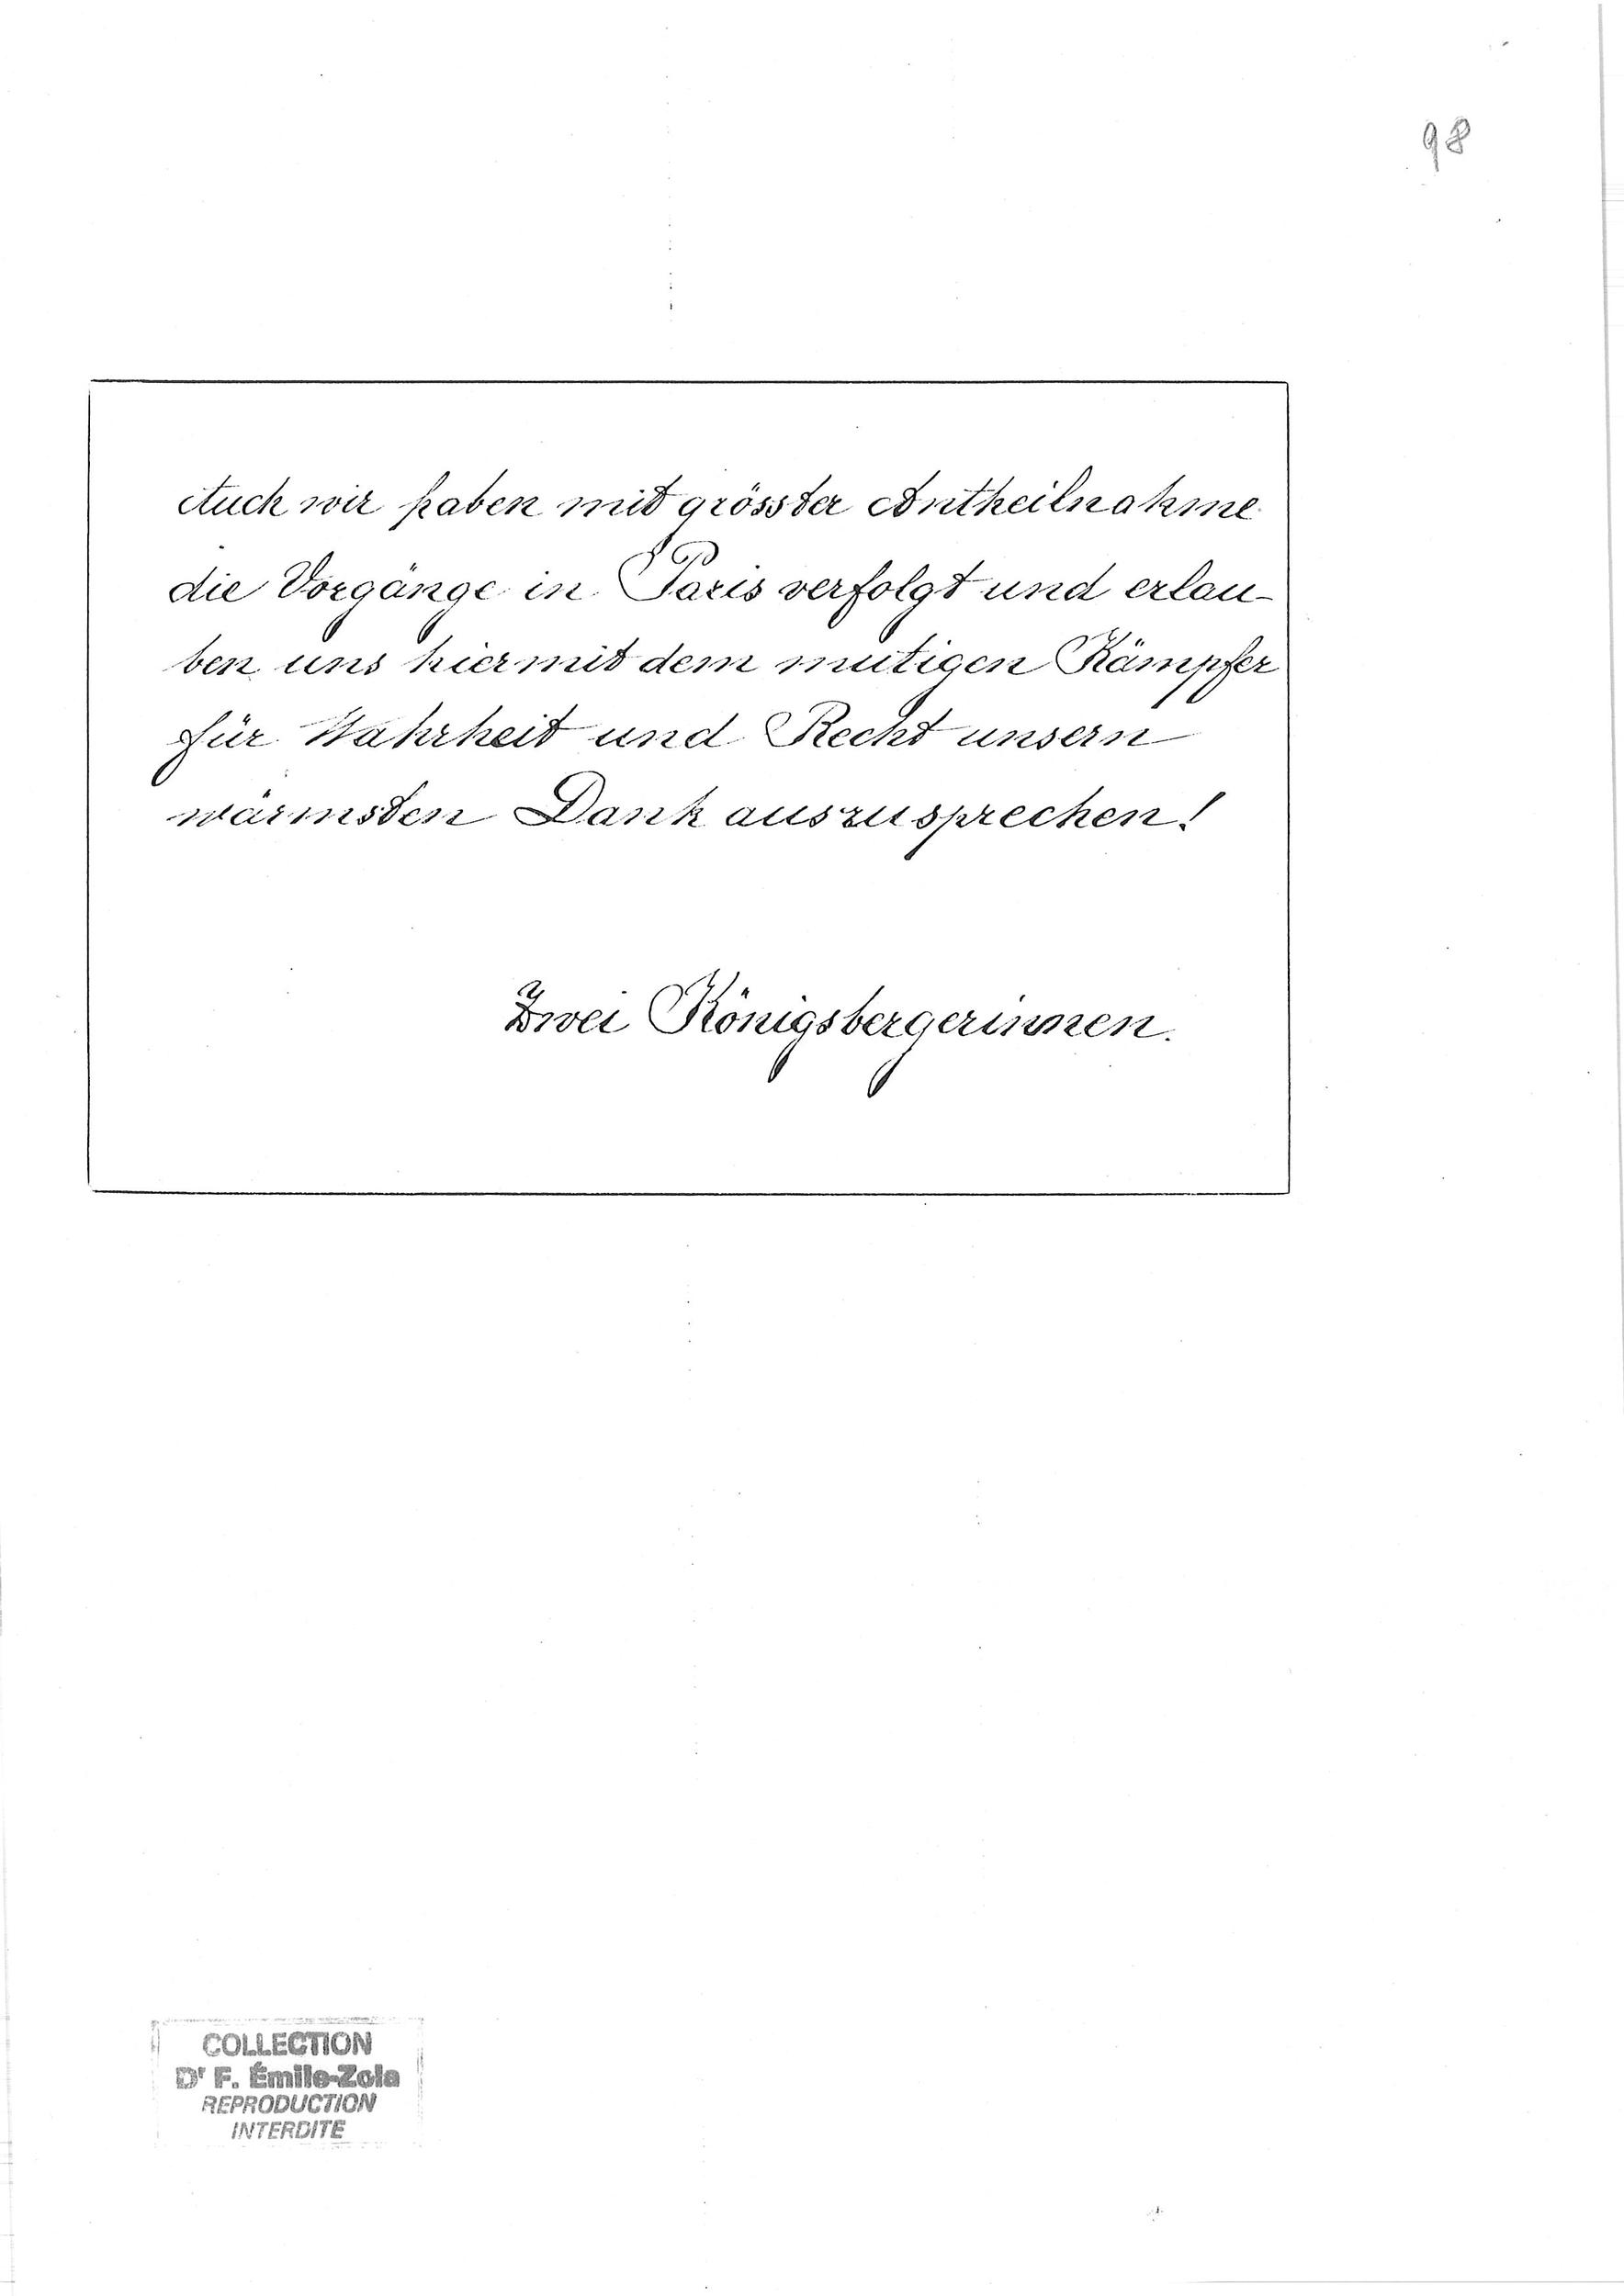 98
Auch wir haben mit grösster Antheilnahme
die Vorgänge in Paris verfolgt und erlau-
ben uns hiermit dem mutigen Kämpfer
für Wahrheit und Recht unsern
wärmsten Dank auszusprechen!
Zwei Königsbergerinnen.
COLLECTION
Dr F. Émile-Zola
REPRODUCTION
INTERDITE